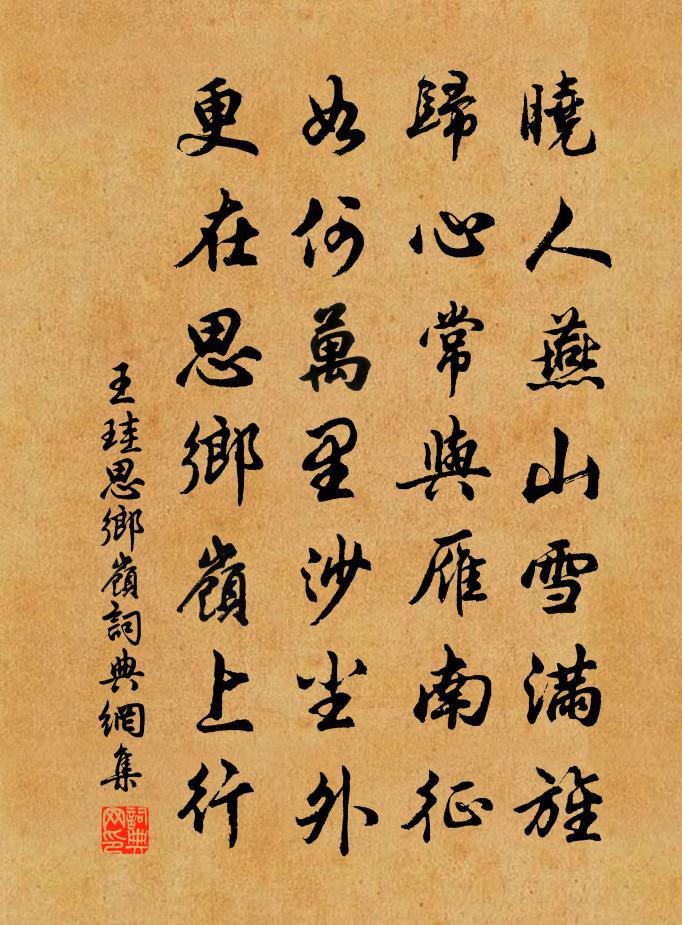 曉人燕山雪滿旌
歸心常與雁南征
如何萬里沙尘外
更在思鄉嶺上行
王珪思鄉嶺詞典網集
詞典网印